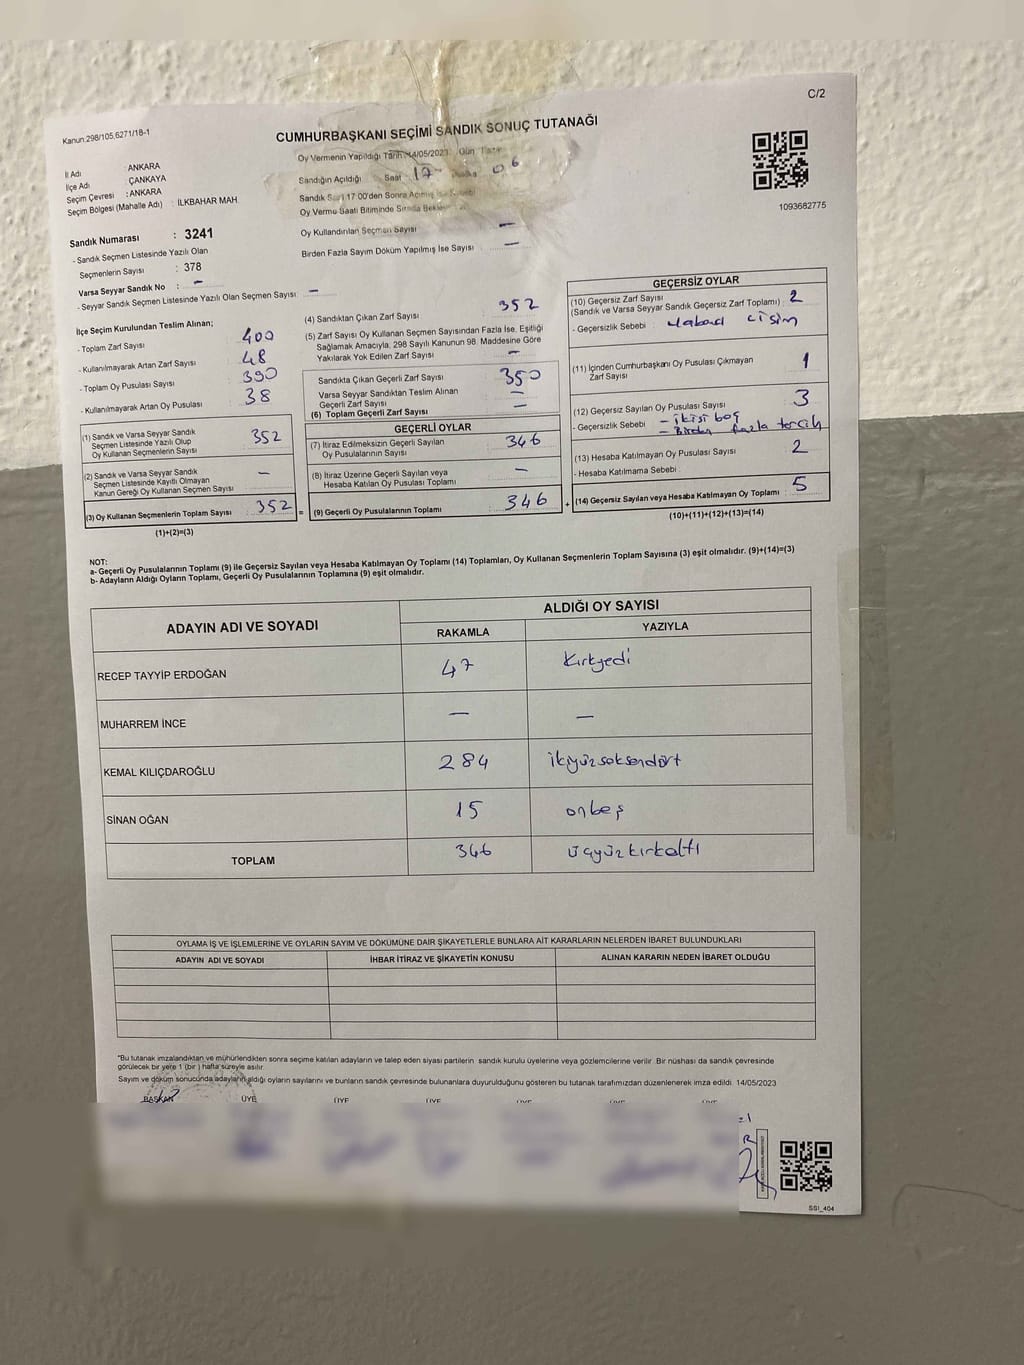 C/2
Kanun:298/105,6271/18-1
CUMHURBAŞKANI SEÇİMİ SANDIK SONUÇ TUTANAĞI
1093682775
İl Adı : ANKARA
İlçe Adı ÇANKAYA
Seçim Çevresi : ANKARA
Seçim Bölgesi (Mahalle Adı) : İLKBAHAR MAH.
Oy Vermenin Yapıldığı Tarih 14/05/2023 Gün
Sandığın Açıldığı Saat 17 06
Sandık 17:00'den Sonra
Oy Verme Saati Bitiminde
Oy Kullandırılan Seçmen Sayısı —
Birden Fazla Sayım Döküm Yapılmış İse Sayısı —
Sandık Numarası : 3241
- Sandık Seçmen Listesinde Yazılı Olan
Seçmenlerin Sayısı : 378
Varsa Seyyar Sandık No : —
- Seyyar Sandık Seçmen Listesinde Yazılı Olan Seçmen Sayısı: —
İlçe Seçim Kurulundan Teslim Alınan;
- Toplam Zarf Sayısı 400
- Kullanılmayarak Artan Zarf Sayısı 48
- Toplam Oy Pusulası Sayısı 390
- Kullanılmayarak Artan Oy Pusulası 38
(1) Sandık ve Varsa Seyyar Sandık
Seçmen Listesinde Yazılı Olup
Oy Kullanan Seçmenlerin Sayısı 352
(2) Sandık ve Varsa Seyyar Sandık
Seçmen Listesinde Kayıtlı Olmayan
Kanun Gereği Oy Kullanan Seçmen Sayısı —
(3) Oy Kullanan Seçmenlerin Toplam Sayısı 352 =
(1)+(2)=(3)
(4) Sandıktan Çıkan Zarf Sayısı 352
(5) Zarf Sayısı Oy Kullanan Seçmen Sayısından Fazla İse, Eşitliği
Sağlamak Amacıyla, 298 Sayılı Kanunun 98. Maddesine Göre
Yakılarak Yok Edilen Zarf Sayısı —
Sandıkta Çıkan Geçerli Zarf Sayısı 350
Varsa Seyyar Sandıktan Teslim Alınan
Geçerli Zarf Sayısı —
(6) Toplam Geçerli Zarf Sayısı —
GEÇERLİ OYLAR
(7) İtiraz Edilmeksizin Geçerli Sayılan
Oy Pusulalarının Sayısı 346
(8) İtiraz Üzerine Geçerli Sayılan veya
Hesaba Katılan Oy Pusulası Toplamı —
(9) Geçerli Oy Pusulalarının Toplamı 346 +
GEÇERSİZ OYLAR
(10) Geçersiz Zarf Sayısı
(Sandık ve Varsa Seyyar Sandık Geçersiz Zarf Toplamı) : 2
- Geçersizlik Sebebi : Yabancı cisim
(11) İçinden Cumhurbaşkanı Oy Pusulası Çıkmayan
Zarf Sayısı 1
(12) Geçersiz Sayılan Oy Pusulası Sayısı 3
- Geçersizlik Sebebi : - ikisi boş
- Birden fazla tercih
(13) Hesaba Katılmayan Oy Pusulası Sayısı 2
- Hesaba Katılmama Sebebi :
(14) Geçersiz Sayılan veya Hesaba Katılmayan Oy Toplamı : 5
(10)+(11)+(12)+(13)=(14)
NOT:
a- Geçerli Oy Pusulalarının Toplamı (9) ile Geçersiz Sayılan veya Hesaba Katılmayan Oy Toplamı (14) Toplamları, Oy Kullanan Seçmenlerin Toplam Sayısına (3) eşit olmalıdır. (9)+(14)=(3)
b- Adayların Aldığı Oyların Toplamı, Geçerli Oy Pusulalarının Toplamına (9) eşit olmalıdır.
ADAYIN ADI VE SOYADI ALDIĞI OY SAYISI
RAKAMLA YAZIYLA
RECEP TAYYİP ERDOĞAN 47 Kırkyedi
MUHARREM İNCE — —
KEMAL KILIÇDAROĞLU 284 ikiyüzseksendört
SİNAN OĞAN 15 onbeş
TOPLAM 346 üçyüzkırkaltı
OYLAMA İŞ VE İŞLEMLERİNE VE OYLARIN SAYIM VE DÖKÜMÜNE DAİR ŞİKAYETLERLE BUNLARA AİT KARARLARIN NELERDEN İBARET BULUNDUKLARI
ADAYIN ADI VE SOYADI İHBAR İTİRAZ VE ŞİKAYETİN KONUSU ALINAN KARARIN NEDEN İBARET OLDUĞU
*Bu tutanak imzalandıktan ve mühürlendikten sonra seçime katılan adayların ve talep eden siyasi partilerin sandık kurulu üyelerine veya gözlemcilerine verilir. Bir nüshası da sandık çevresinde
görülecek bir yere 1 (bir) hafta süreyle asılır.
Sayım ve döküm sonucunda adayların aldığı oyların sayılarını ve bunların sandık çevresinde bulunanlara duyurulduğunu gösteren bu tutanak tarafımızdan düzenlenerek imza edildi. 14/05/2023
BAŞKAN ÜYE ÜYE ÜYE
SSI_404